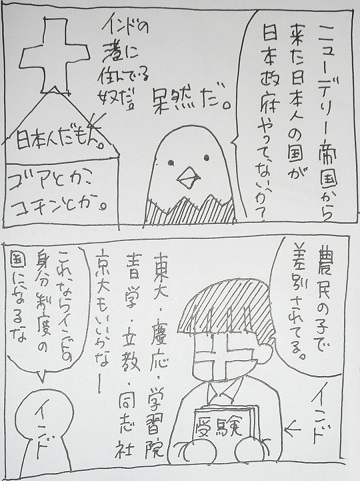 ニューデリー帝国から
来た日本人の国が
日本政府やってないか?
呆然だ。
インドの
港に
住んでる
奴だ。
日本人だもん。
ゴアとか
コチンとか。
農民の子で
差別されてる。
インド
受験
東大・慶応・学習院
青学・立教・同志社
京大もいいかなー
これならインドの
身分制度の
国になるな
インド